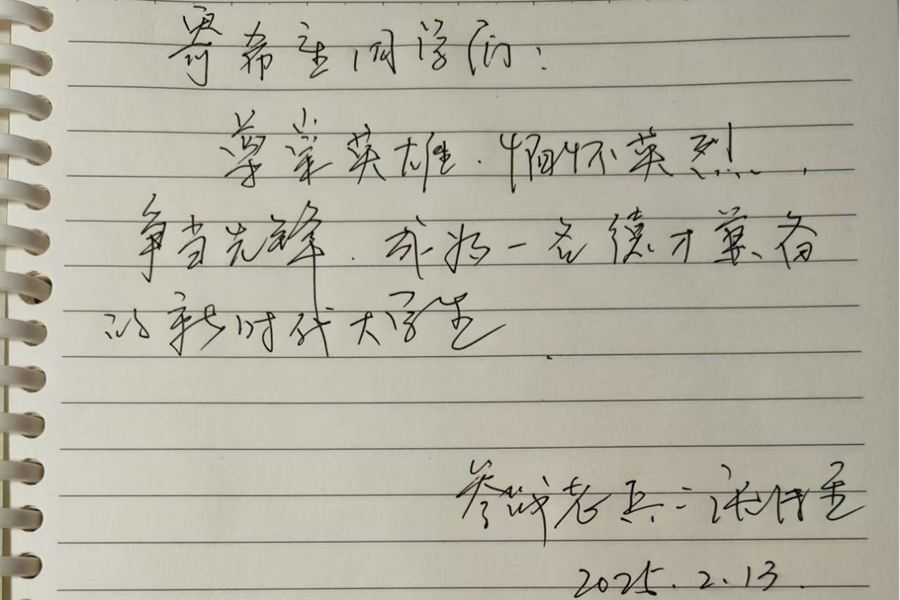 寄希望同学们：
学崇英雄．缅怀英烈，
争当先锋．成为一名德才兼备
的新时代大学生．
参战老兵：
2025.2.13.